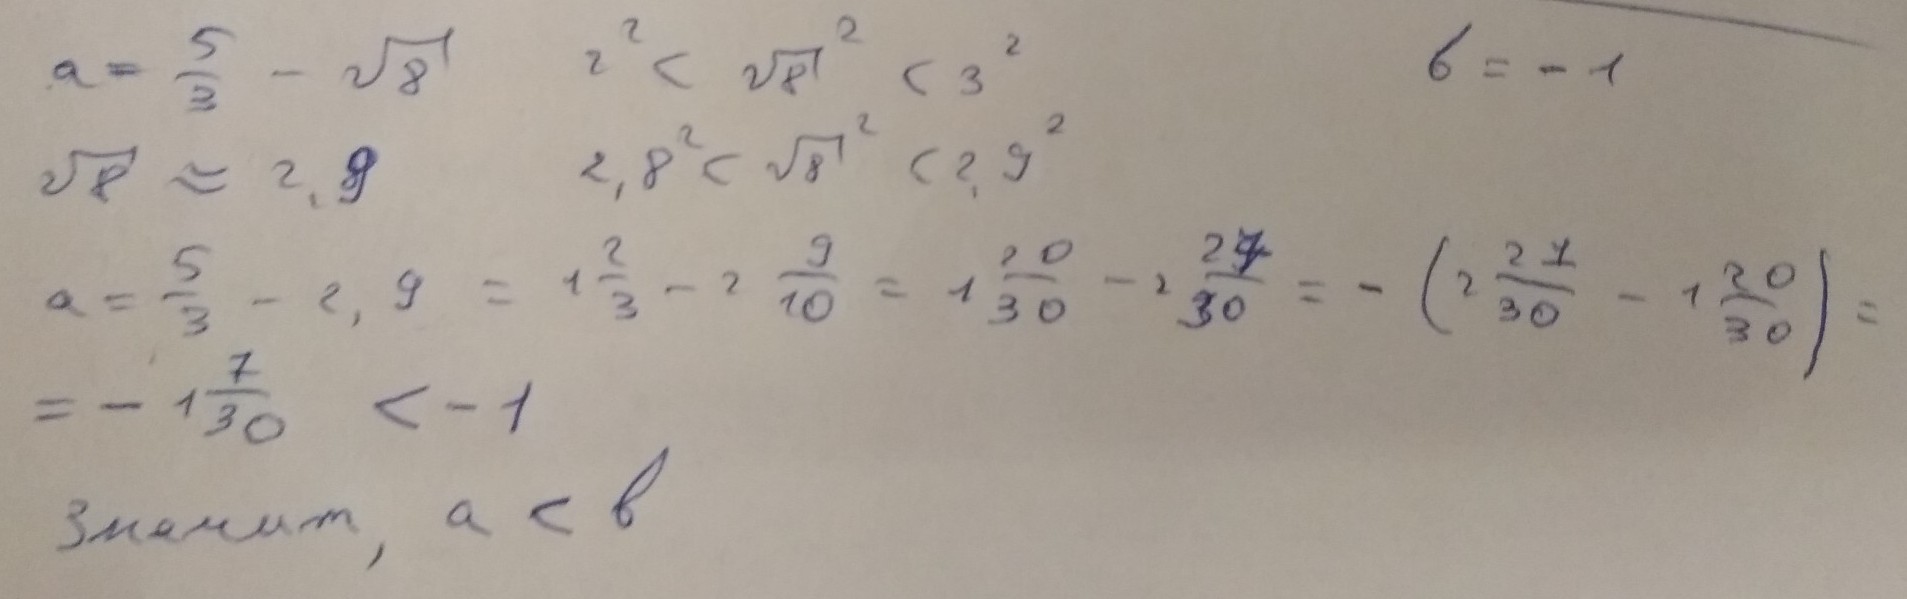 a = 5/3 - √8 2² < √8² < 3² b = -1
√8 ≈ 2,9 2,8² < √8² < 2,9²
a = 5/3 - 2,9 = 1 2/3 - 2 9/10 = 1 20/30 - 2 27/30 = - (2 27/30 - 1 20/30) =
= - 1 7/30 < -1
Значит, a < b